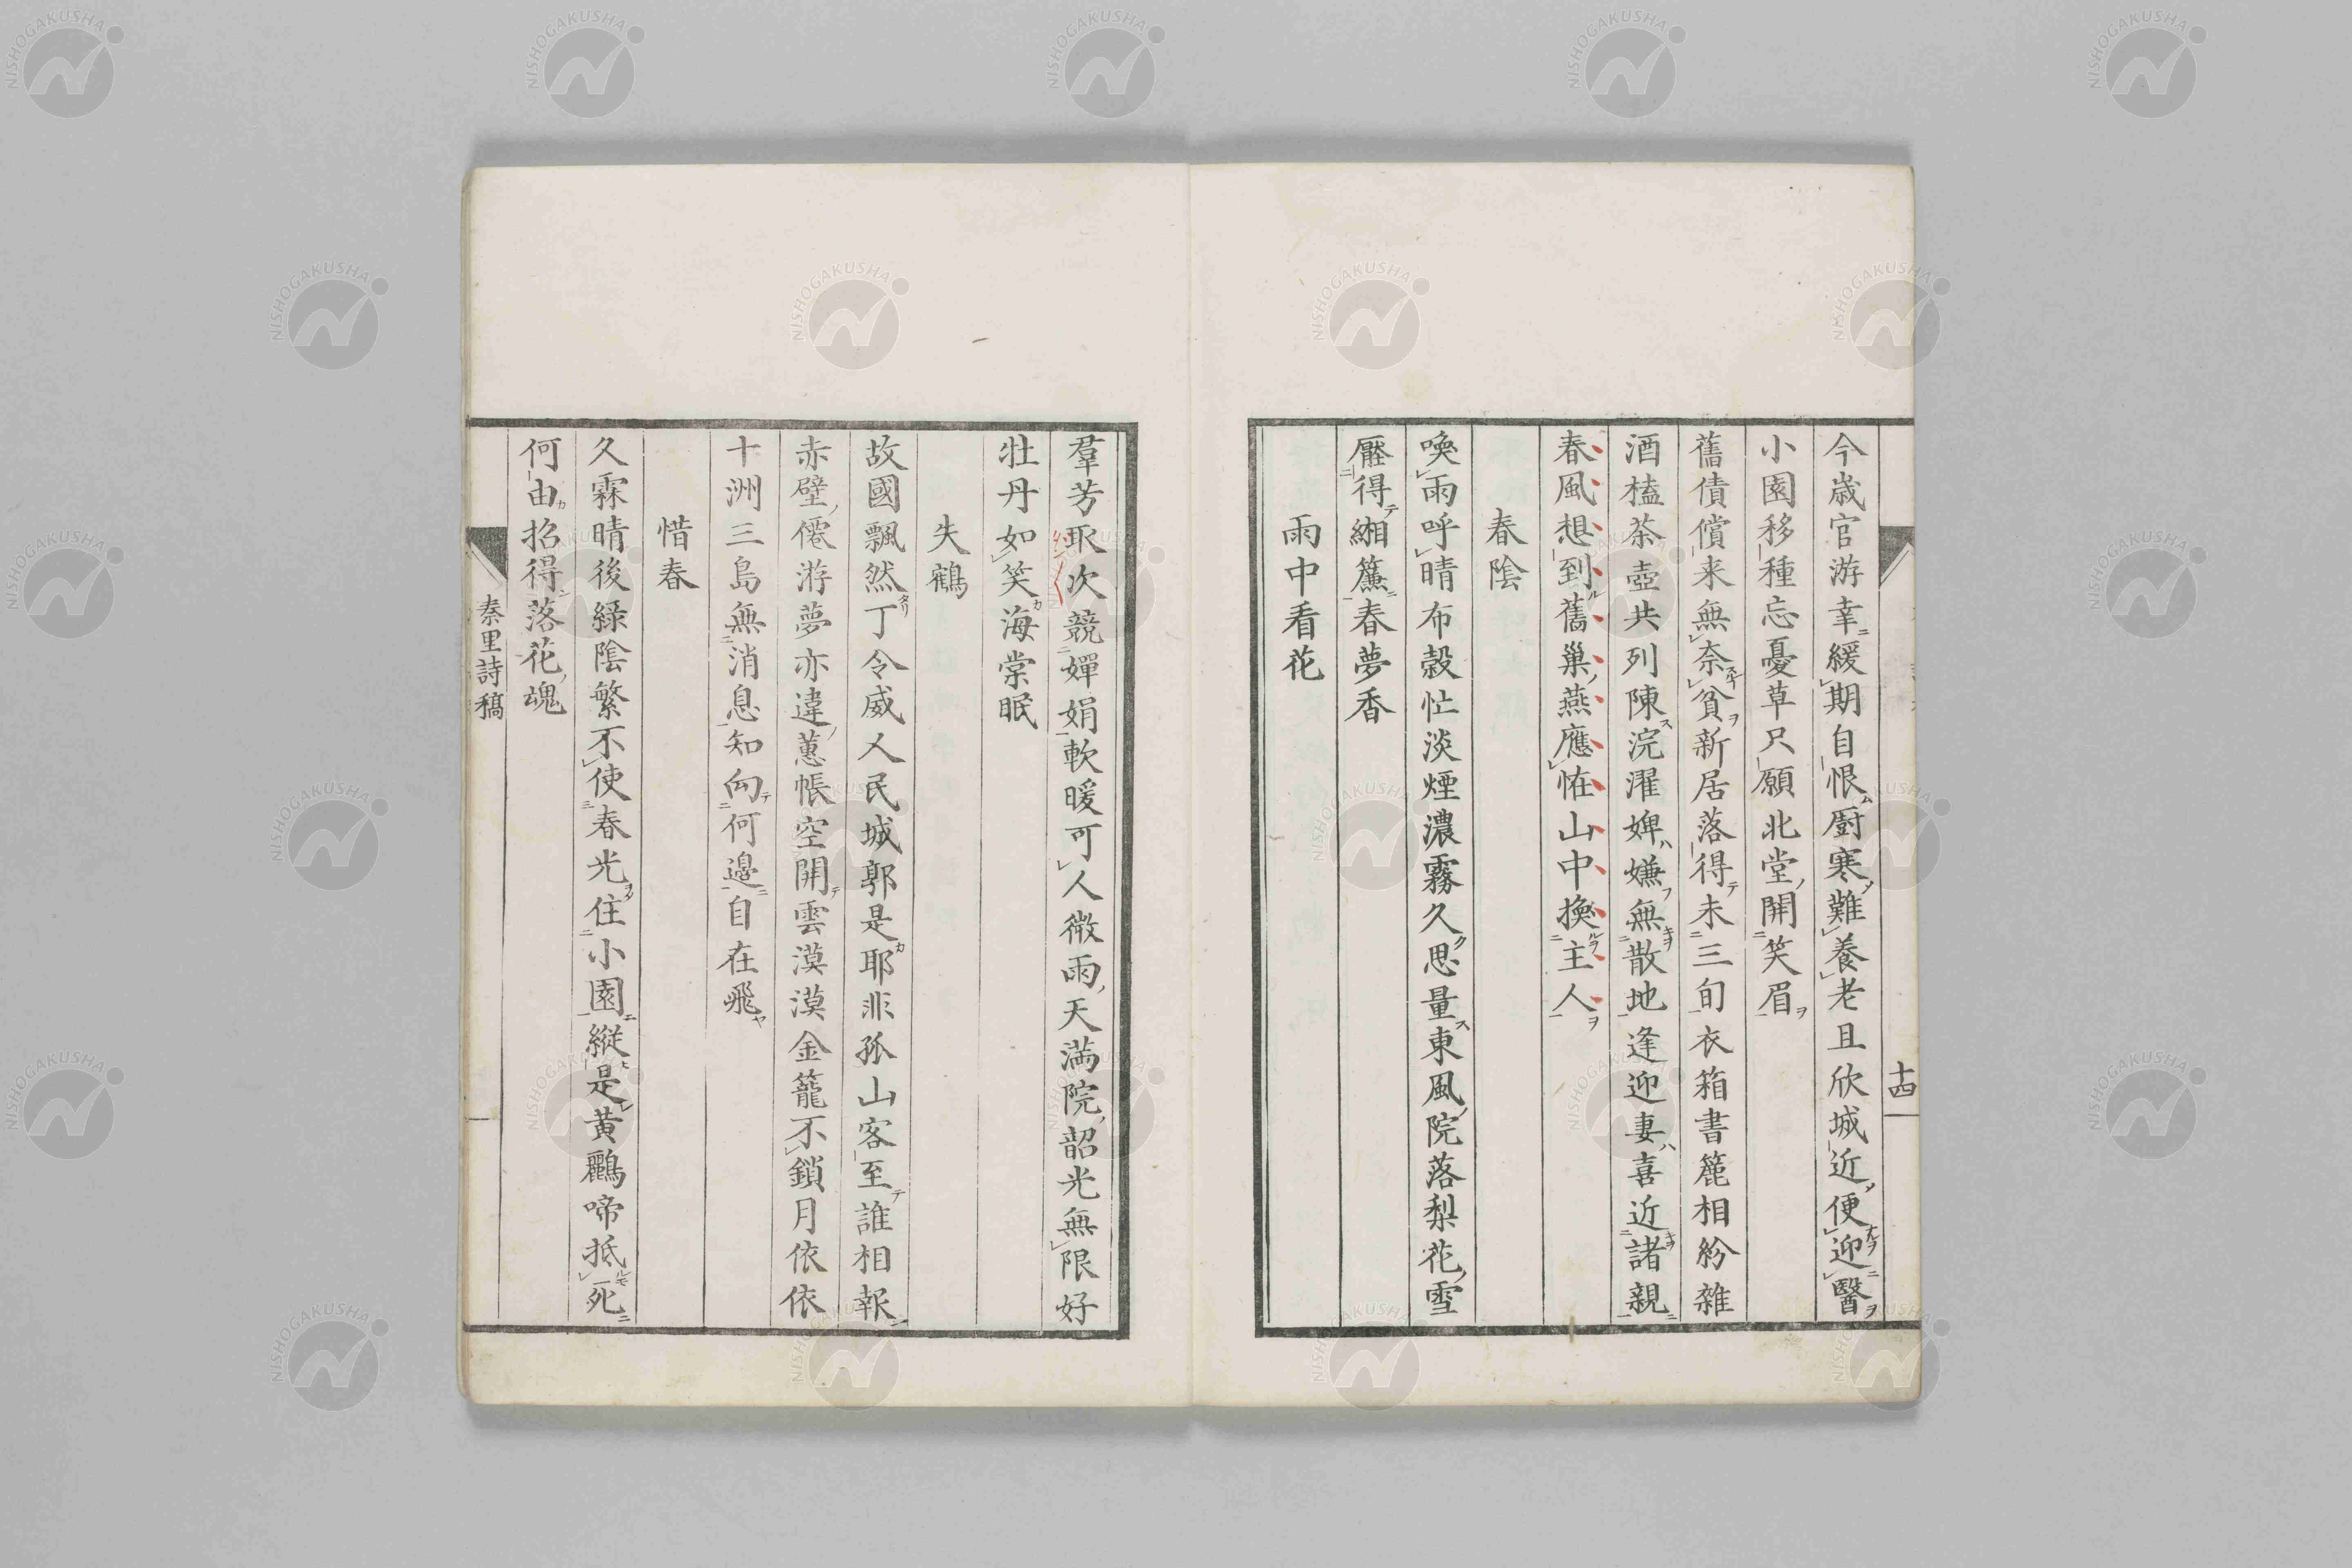 今歳官游幸緩期自恨厨寒難養老且欣城近便迎醫
小園移種忘憂草只願北堂開笑眉
舊債償来無奈貧新居落得未三旬衣箱書簏相紛雜
酒榼茶壺共列陳浣濯婢嫌無散地逢迎妻喜近諸親
春風想到舊巢燕應恠山中換主人
春陰
喚雨呼晴布穀忙淡煙濃霧久思量東風院落梨花雪
壓得緗簾春夢香
雨中看花
十四
羣芳取次競嬋娟軟暖可人微雨天満院韶光無限好
牡丹如笑海棠眠
失鶴
故國飄然丁令威人民城郭是耶非孤山客至誰相報
赤壁僊游夢亦違蕙帳空開雲漠漠金籠不鎖月依依
十洲三島無消息知向何邊自在飛
惜春
久霖晴後緑陰繁不使春光住小園縦是黄鸝啼抵死
何由招得落花魂
秦里詩稿